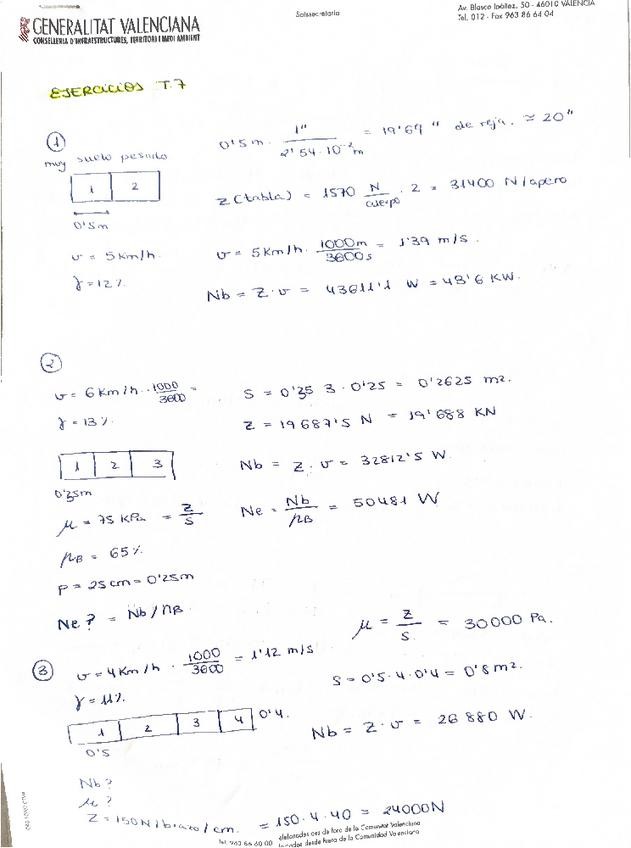 GENERALITAT VALENCIANA
CONSELLERIA D'INFRAESTRUCTURES, TERRITORI I MEDI AMBIENT
Sotssecretaria
Av. Blasco Ibáñez, 50 - 46010 VALENCIA
Tel. 012 - Fax 963 86 64 04
EJERCICIOS T.7
①
muy suelo pesado
1 2
0'5m
v = 5 km/h.
γ = 12%
0'5 m · 1" / 2'54·10⁻² m = 19'69 " de reja. ≃ 20"
Z (tabla) = 1570 N/cuerpo · 2 = 31400 N/apero
v = 5 km/h · 1000m/3600s = 1'39 m/s.
Nb = Z·v = 43611'1 W = 43'6 KW.
②
v = 6 km/h · 1000/3600 =
γ = 13%
1 2 3
0'35m
μ = 75 KPa = Z/S
μB = 65%
P = 25cm = 0'25m
Ne? = Nb/ηB
S = 0'35 3 · 0'25 = 0'2625 m².
Z = 19687'5 N = 19'688 KN
Nb = Z · v = 32812'5 W.
Ne = Nb/μB = 50481 W
③
v = 4 Km/h · 1000/3600 = 1'12 m/s
γ = 11%
1 2 3 4 0'4.
0'5
Nb?
μ?
Z = 150 N/brazo/cm. = 150·4·40 = 24000N
μ = Z/S = 30000 Pa.
S = 0'5·4·0'4 = 0'8 m².
Nb = Z·v = 26 880 W.
Tel. 963 86 60 00
de fora de la Comunitat Valenciana
desde fuera de la Comunidad Valenciana